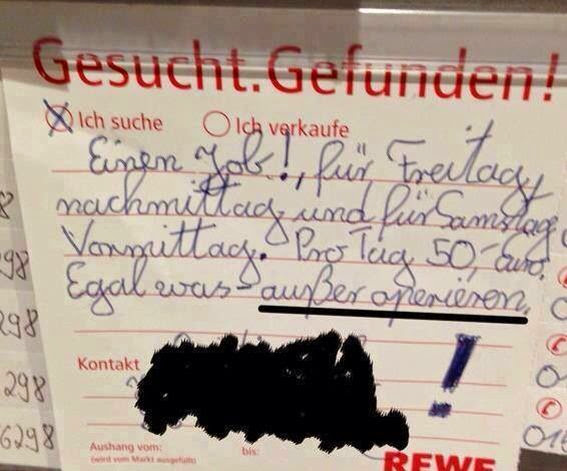 Gesucht. Gefunden!
Ich suche Ich verkaufe
Einen Job!, für Freitag,
nachmittag und für Samstag
Vormittag. Pro Tag 50,- Euro.
Egal was - außer operieren
!
Kontakt
Aushang vom: bis:
(wird vom Markt ausgefüllt)
REWE
8
98
298
298
6298